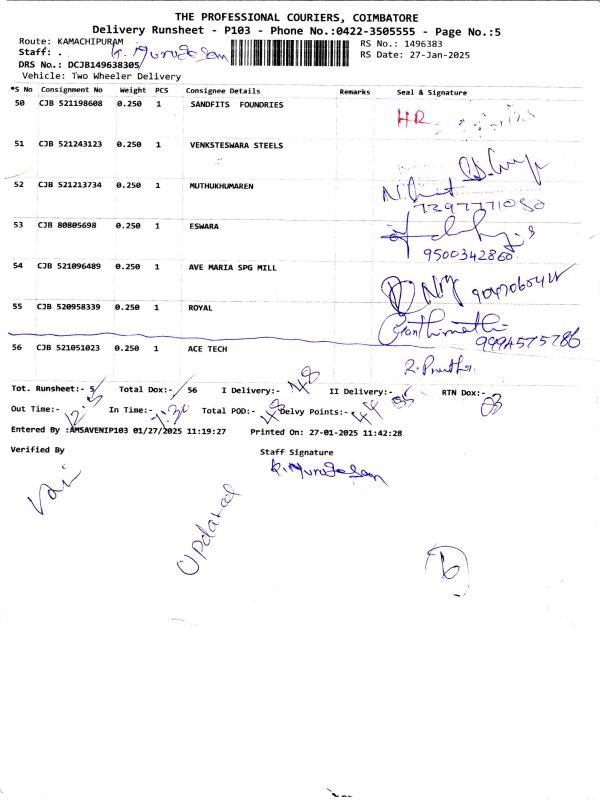 THE PROFESSIONAL COURIERS, COIMBATORE
Delivery Runsheet - P103 - Phone No.:0422-3505555 - Page No.:5
Route: KAMACHIPURAM RS No.: 1496383
Staff: . K. Murugesan RS Date: 27-Jan-2025
DRS No.: DCJB149638305
Vehicle: Two Wheeler Delivery
*S No Consignment No Weight PCS Consignee Details Remarks Seal & Signature
50 CJB 521198608 0.250 1 SANDFITS FOUNDRIES HR
51 CJB 521243123 0.250 1 VENKSTESWARA STEELS
52 CJB 521213734 0.250 1 MUTHUKHUMAREN
7297771080
53 CJB 80805698 0.250 1 ESWARA
9500342860
54 CJB 521096489 0.250 1 AVE MARIA SPG MILL
55 CJB 520958339 0.250 1 ROYAL
9994575786
56 CJB 521051023 0.250 1 ACE TECH
Tot. Runsheet:- 5 Total Dox:- 56 I Delivery:- 48 II Delivery:- 05 RTN Dox:- 03
Out Time:- In Time:- 7:30 Total POD:- 48 Delvy Points:- 44
Entered By :AMSAVENIP103 01/27/2025 11:19:27 Printed On: 27-01-2025 11:42:28
Verified By Staff Signature
K. Murugesan
Updated
6